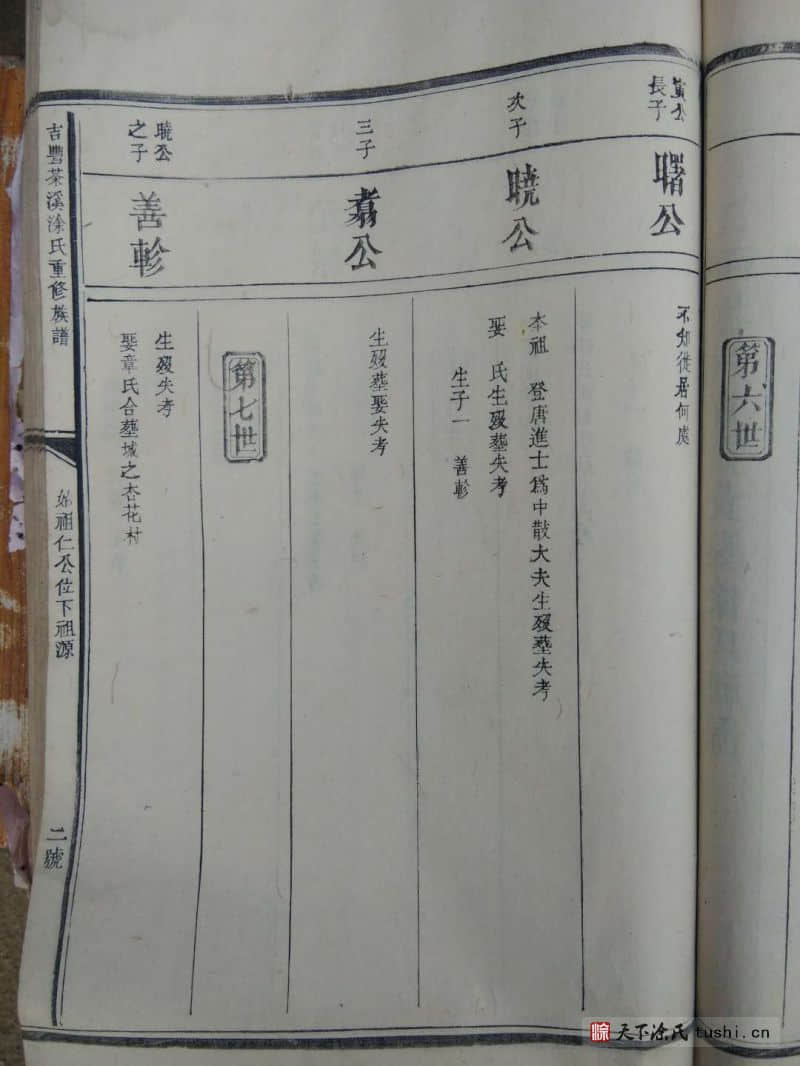 第六世
長子
曙公
不知徙居何處
次子
曉公
本祖 登唐進士為中散大夫生歿塟失考
娶 氏生歿塟失考
生子一 善軫
三子
翥公
生歿塟娶失考
第七世
曉公
之子
善軫
生歿失考
娶章氏合塟城之杏花村
吉豐茶溪涂氏重修族譜
始祖仁公位下祖源
二號
涂 天下涂氏 tushi.cn